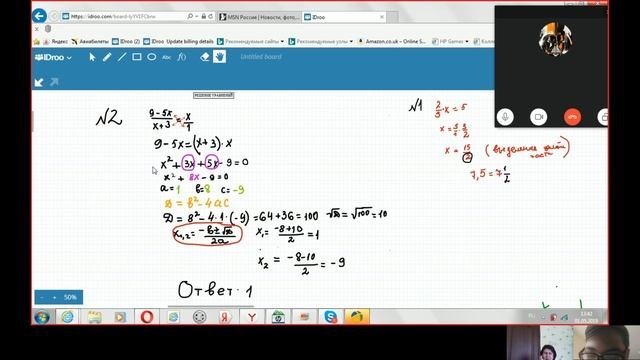 https://idroo.com/board-lyYVEFCbnv
MSN Россия | Новости, фото,...
IDroo
Авиабилеты
IDroo (2)
IDroo
Update billing details
Рекомендуемые сайты
Рекомендуемые узлы
Amazon.co.uk – Online S...
HP Games
IDroo
Untitled board
РЕШЕНИЕ УРАВНЕНИЙ
N2
(9-5x)/(x+3) = x/1
9-5x=(x+3)·x
x²+3x+5x-9=0
x²+8x-9=0
a=1 b=8 c=-9
D=b²-4ac
D=8²-4·1·(-9)=64+36=100 √D=√100=10
x₁,₂=(-b±√D)/2a x₁=(-8+10)/2=1
x₂=(-8-10)/2=-9
Ответ: 1
N1
2/3·x=5
x=5/1·3/2
x=15/2 (выделение целой части)
7,5=7 1/2
50%
RU
13:42
01.05.2019